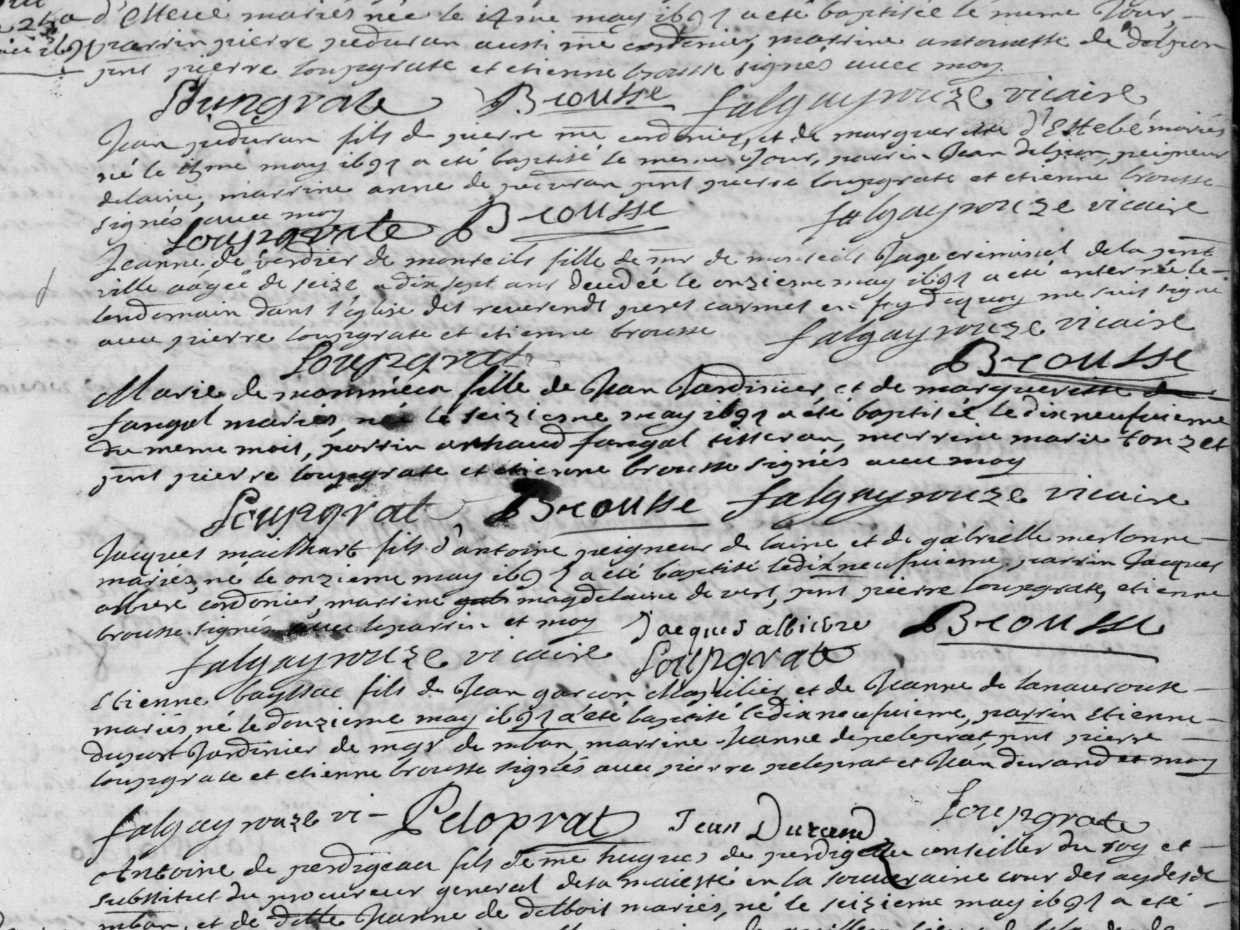 d'Estebé mariés née le 14me may 1691 a été baptisée le meme Jour,
parrin pierre peduran aussi me cordonier, marrine antonette de delpion
pnt pierre loupgrate et etienne brousse signés avec moy.
Loupgrate Brousse falgayrouze vicaire
Jean peduran fils de pierre me cordonier, et de margueritte d'Estebé mariés
né le 15me may 1691 a été baptisé le meme Jour, parrin Jean delpon, peigneur
delaine, marrine anne de peduran pnt pierre loupgrate et etienne brousse
signés avec moy
Loupgrate Brousse falgayrouze vicaire
Jeanne de verdier de monteils fille de mr de monteils Juge criminel de la pnt
ville aagée de seize a dix sept ans decedée le onziesme may 1691 a été enterrée le
lendemain dans l'église des reverends peres carmes en foy dequoy me suis signé
avec pierre loupgrate et etienne brousse falgayrouze vicaire
Loupgrat Brousse
Marie de fille de Jean Jardinier, et de margueritte
fangal mariés, née le seiziesme may 1691 a été baptisée le dixneufvieme
du meme mois, parrin arnaud fangal tisseran, marrine marie
pnt pierre loupgrate et etienne brousse signés avec moy
Loupgrat Brousse falgayrouze vicaire
Jacques mailhart fils d'antoine peigneur de laine et de gabrielle merlonne
mariés, né le onzieme may 1691 a été baptisé ledixneufvieme, parrin Jacques
cordonier, marrine magdelaine de vert, pnt pierre loupgrate, etienne
brousse signés avec leparrin et moy Jacques albiere Brousse
falgayrouze vicaire Loupgrate
Etienne bayssac fils de Jean garçon et de Jeanne de lanaurouse
mariés, né le douzieme may 1691 a été baptisé ledixneufvieme, parrin Etienne
dupart Jardinier de mgr de mban, marrine Jeanne de peloprat pnt pierre
loupgrate et etienne brousse signés avec pierre peloprat et Jean durand et moy
falgayrouze vi- Peloprat Jean Durand Loupgrate
Antoine de perdigeau fils de me hugues de perdigeau conseiller du roy et
substitut du procureur general de sa maiesté en la souveraine cour des aydes de
mban, et de Jeanne de delboit mariés, né le seizieme may 1691 a été